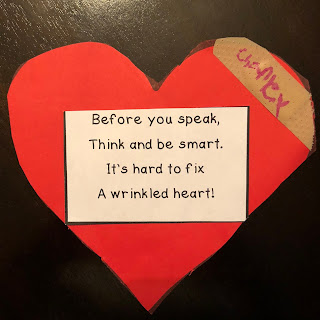 Before you speak,
Think and be smart.
It's hard to fix
A wrinkled heart!